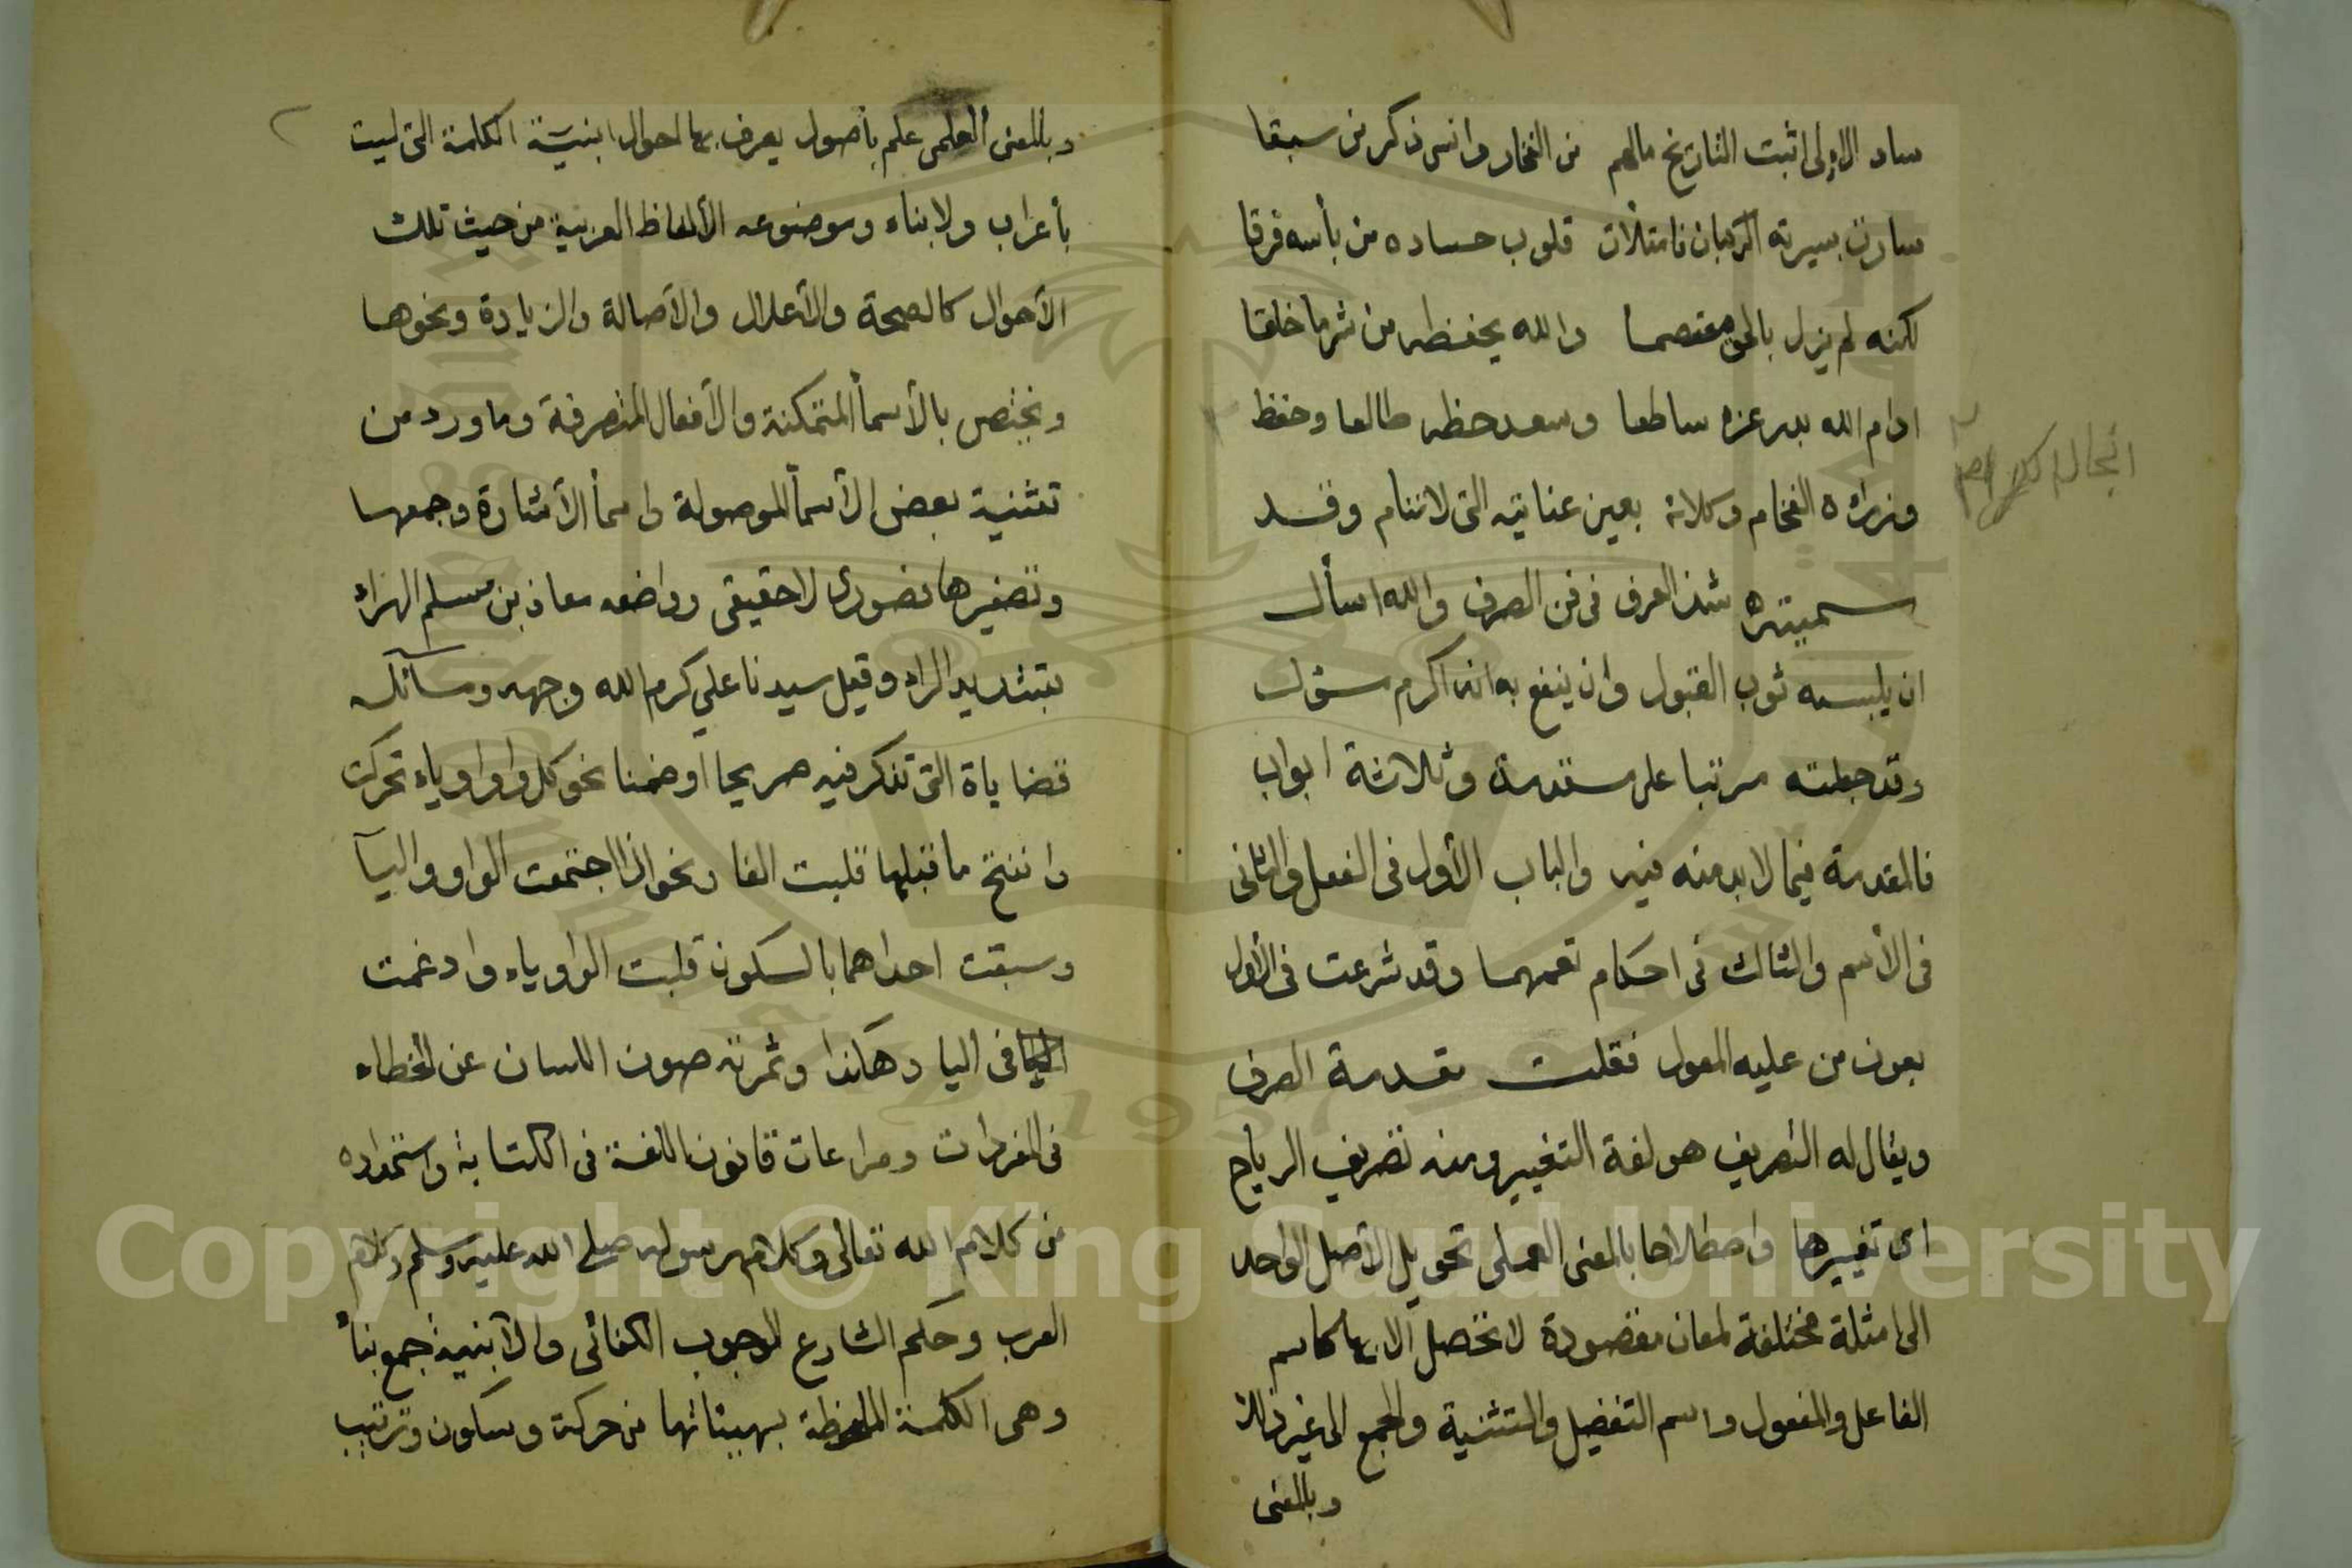 ساد الاولى اثبت التاريخ مالهم من الفخار وانسى ذكر من سبقا
سارت بسيرته الركبان فامتلأت قلوب حساده من بأسه فرقا
لكنه لم يزل بالحق معتصما والله يحفظه من شر ما خلقا
ادام الله بدر عزه ساطعا وسعد حظه طالعا وحفظ
وزراؤه الفخام وكلائه بعين عنايته التى لاتنام وقد
سميته شذ العرف فى فن الصرف والله اسأل
ان يلبسه ثوب القبول وان ينفع به انه اكرم سؤل
وقد جعلته مرتبا على مقدمة وثلاثة ابواب
فالمقدمة فيما لابد منه فيه والباب الأول فى الفعل والثانى
فى الأسم والثالث فى احكام تعمهما وقد شرعت فى الأول
بعون من عليه المعول فقلت مقدمة الصرف
ويقال له التصريف هو لغة التغيير ومنه تصريف الرياح
اى تغييرها واصطلاحا بالمعنى العملى تحويل الأصل الواحد
الى امثلة مختلفة لمعان مقصودة لا تحصل الا بها كاسم
الفاعل والمفعول واسم التفضيل والتثنية والجمع الى غير ذالك
وبالمعنى
٢
وبالمعنى العلمى علم بأصول يعرف بها احوال ابنيّة الكلمة التى ليست
بأعراب ولا بناء وموضوعه الألفاظ العربية من حيث تلك
الأحوال كالصحة والأعلال والأصالة والزيادة ونحوها
ويختص بالأسمأ المتمكنة والأفعال المتصرفة وما ورد من
تثنية بعض الأسمأ الموصولة واسمأ الأشارة وجمعها
وتصغيرها فصورى لاحقيقى وواضعه معاذ بن مسلم الهراء
بتشديد الراء وقيل سيدنا علي كرم الله وجهه ومسآئله
قضاياة التى تذكر فيه صريحا او ضمنا نحو كل واو او ياء تحركت
وانفتح ما قبلها قلبت الفا ونحو اذا اجتمعت الواو واليآ
وسبقت احداهما بالسكون قلبت الواو ياء وادغمت
اليا فى اليا وهاكذا وثمرته صون اللسان عن الخطاء
فى المفردات ومراعات قانون اللغة فى الكتابة واستمداده
من كلام الله تعالى وكلام رسوله صلى الله عليه وسلم وكلام
العرب وحكم الشارع الوجوب الكفائى والأبنية جمع بنأ
وهى الكلمة الملحوظة بهيئاتها من حركة وسكون وترتيب
Copyright © King Saud University
1957